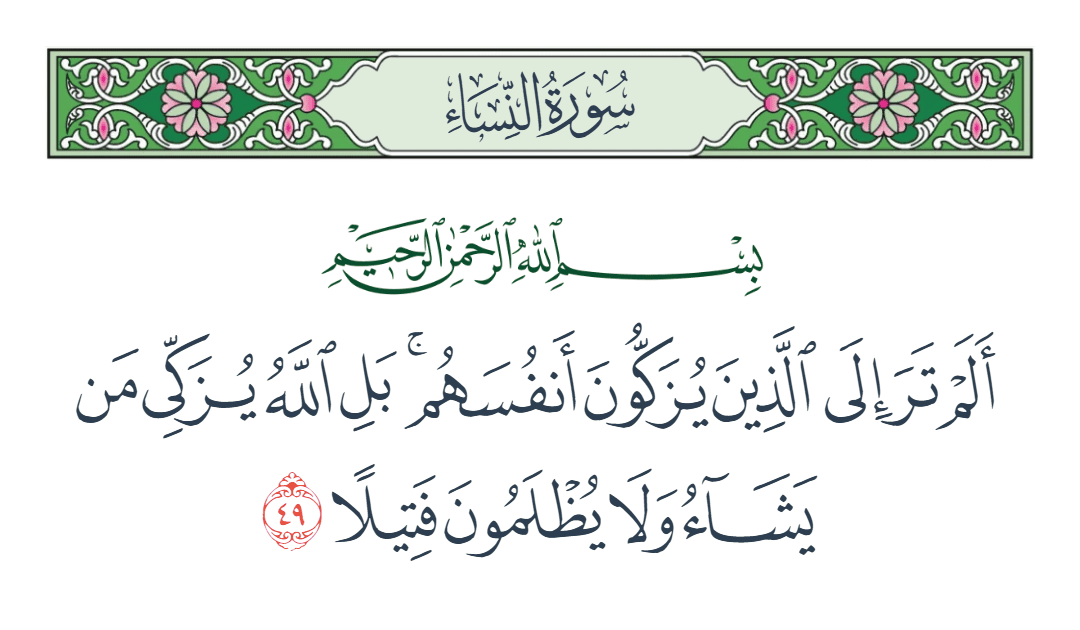 سُورَةُ النِّسَاءِ
بِسْمِ ٱللَّهِ ٱلرَّحْمَٰنِ ٱلرَّحِيمِ
أَلَمْ تَرَ إِلَى ٱلَّذِينَ يُزَكُّونَ أَنفُسَهُم ۚ بَلِ ٱللَّهُ يُزَكِّى مَن
يَشَآءُ وَلَا يُظْلَمُونَ فَتِيلًا ٤٩